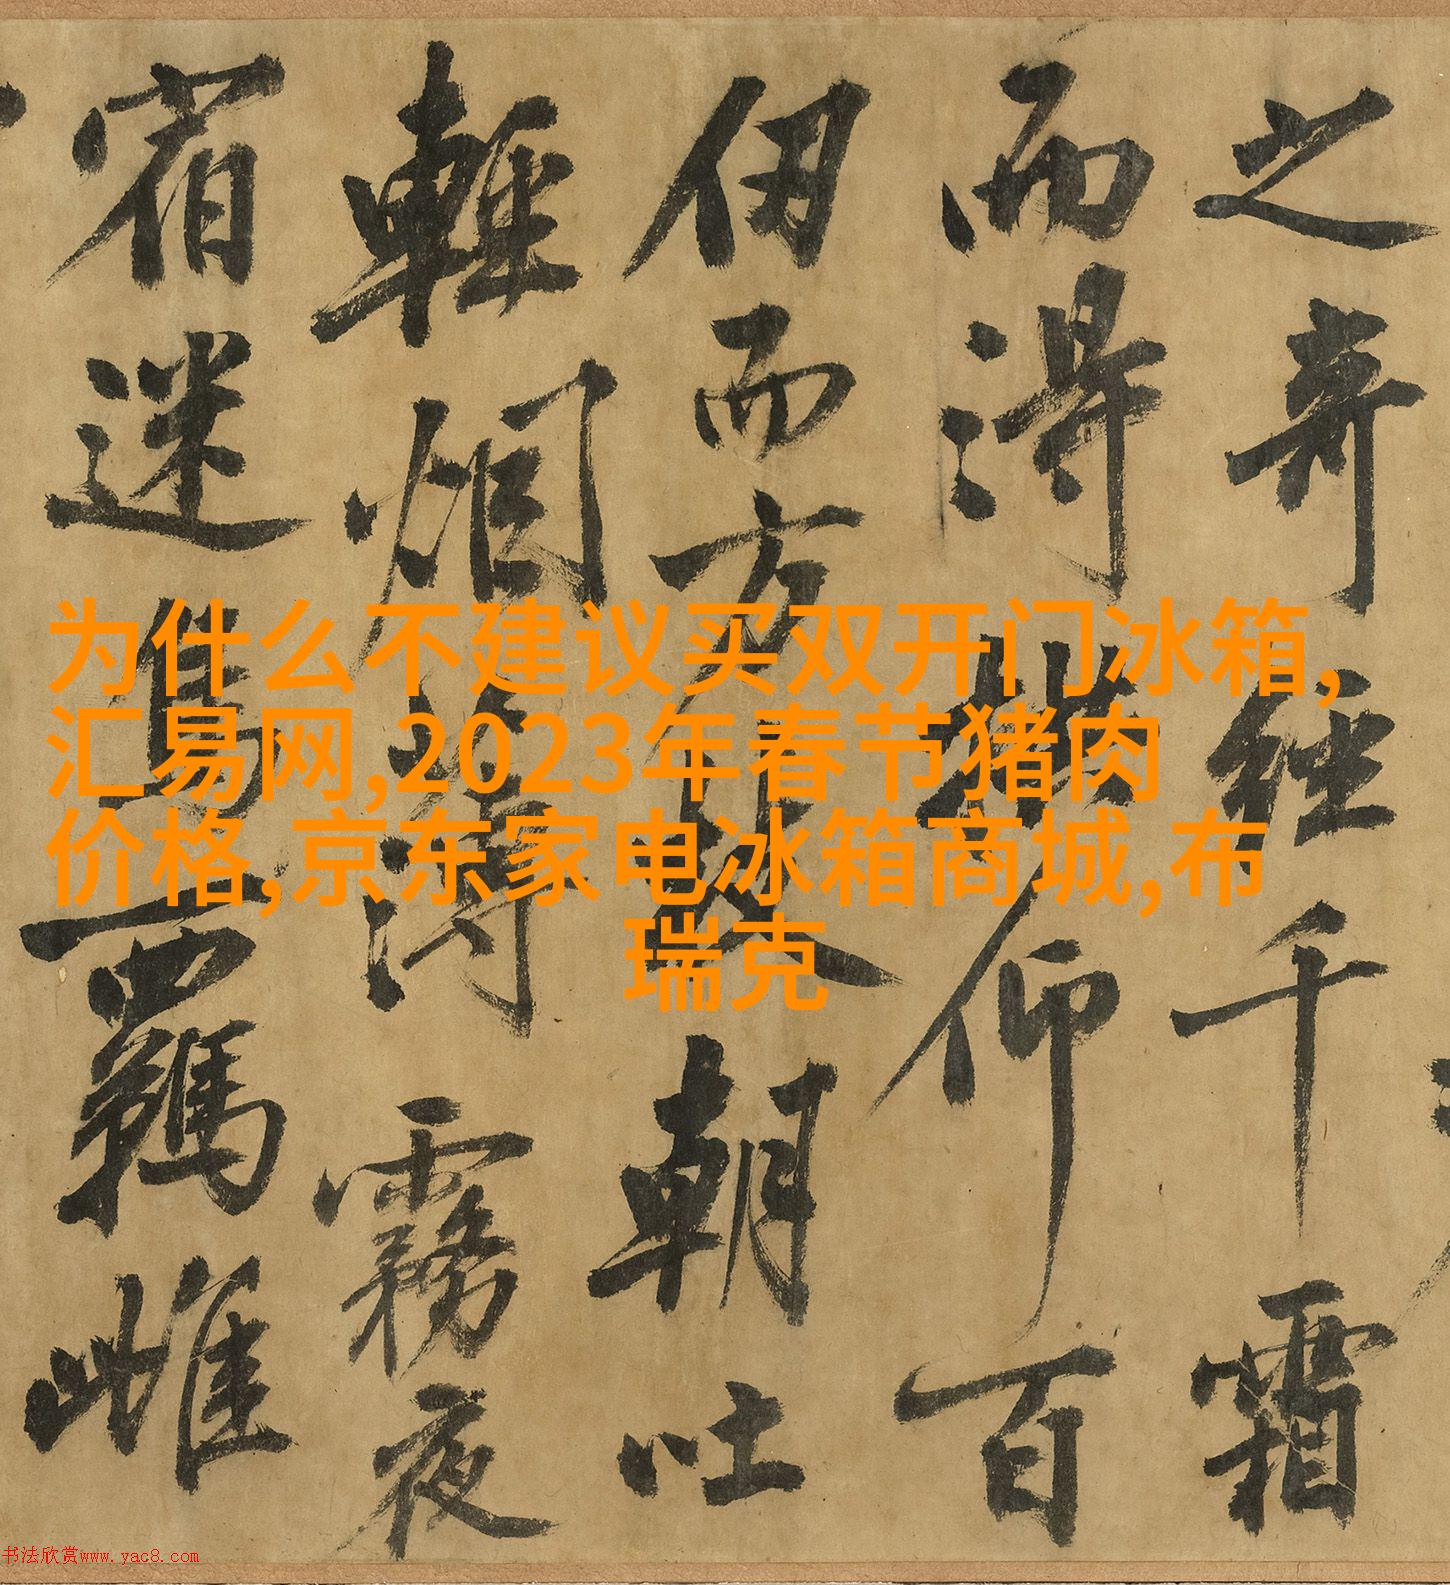 之奇經千霜
而得拱仰百
仞而方枝朝吐
輕烟薄霧夜
宿迷鳥羈雌
为什么不建议买双开门冰箱,
汇易网,2023年春节猪肉
价格,京东家电冰箱商城,布
瑞克
书法欣赏www.yac8.com